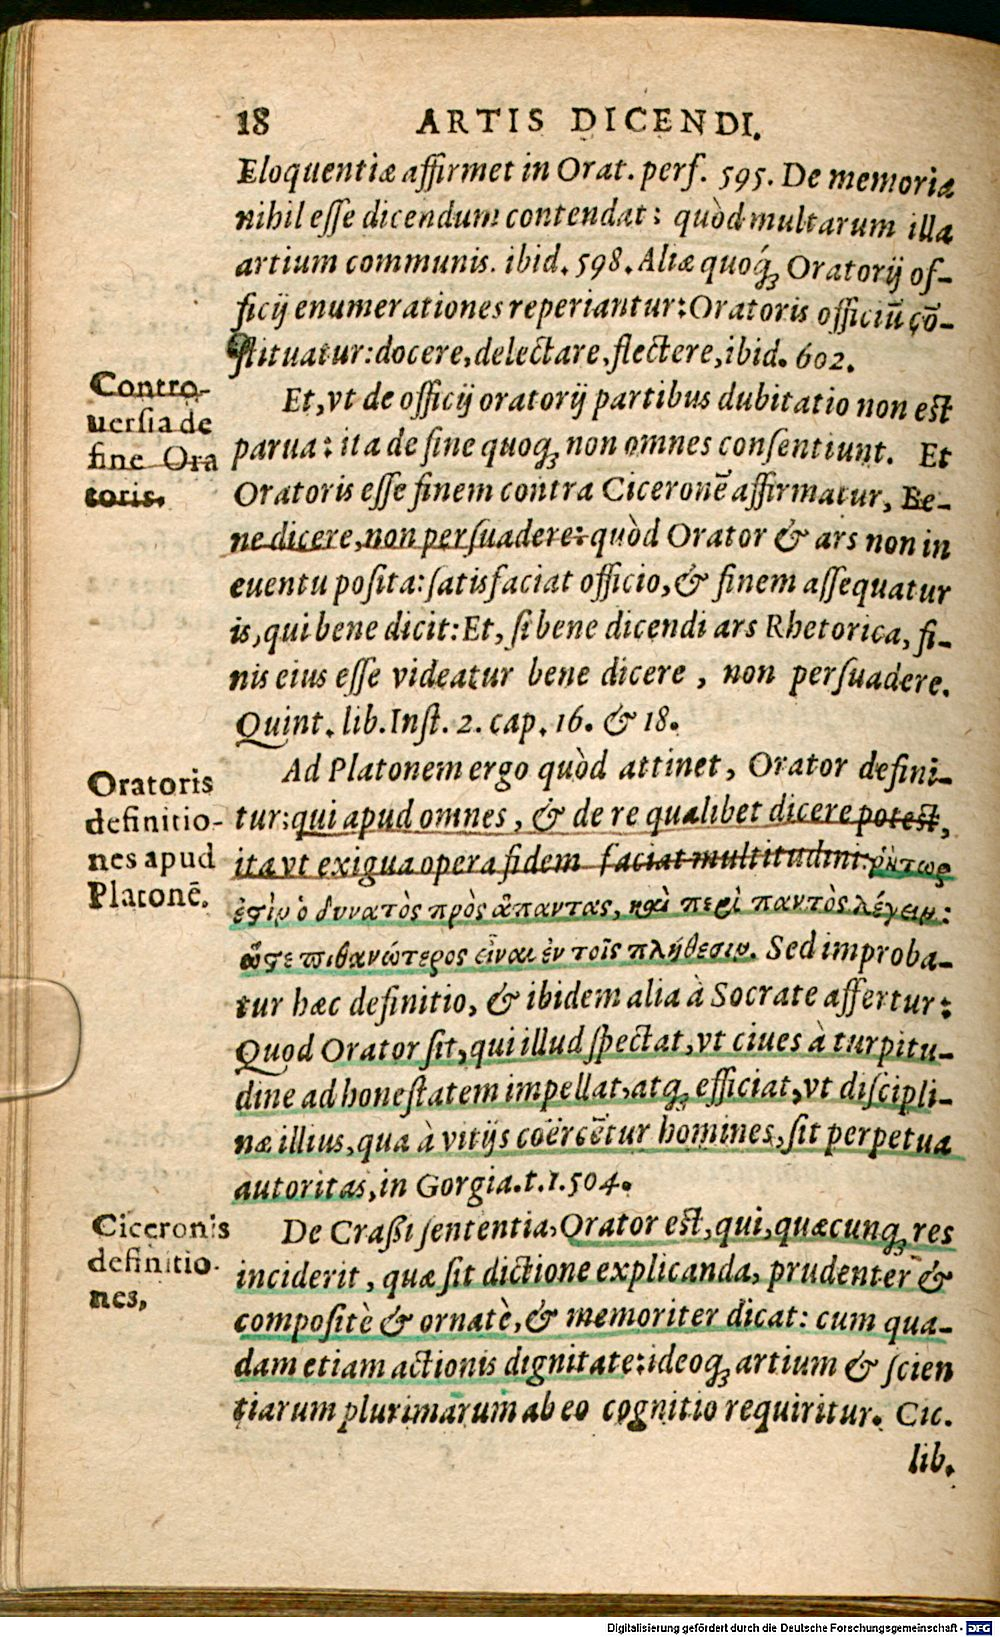 18 ARTIS DICENDI.
Eloquentiæ affirmet in Orat. perf. 595. De memoria
nihil esse dicendum contendat: quòd multarum illa
artium communis. ibid. 598. Aliæ quoq́; Oratorij of-
ficij enumerationes reperiantur: Oratoris officiũ cõ-
stituatur: docere, delectare, flectere, ibid. 602.
Contro-
uersia de
fine Ora
toris.
Et, vt de officij oratorij partibus dubitatio non est
parua: ita de fine quoq; non omnes consentiunt. Et
Oratoris esse finem contra Ciceronẽ affirmatur, Be-
ne dicere, non persuadere: quòd Orator & ars non in
euentu posita: satisfaciat officio, & finem assequatur
is, qui bene dicit: Et, si bene dicendi ars Rhetorica, fi-
nis eius esse videatur bene dicere, non persuadere.
Quint. lib. Inst. 2. cap. 16. & 18.
Oratoris
definitio-
nes apud
Platonẽ.
Ad Platonem ergo quòd attinet, Orator defini-
tur: qui apud omnes, & de re qualibet dicere potest,
ita vt exigua opera fidem faciat multitudini: ῥήτωρ
ἐστὶν ὁ δυνατὸς πρὸς ἅπαντας, καὶ περὶ παντὸς λέγειν:
ὥστε πιθανώτερος εἶναι ἐν τοῖς πλήθεσιν. Sed improba-
tur hæc definitio, & ibidem alia à Socrate affertur:
Quod Orator sit, qui illud spectat, vt ciues à turpitu-
dine ad honestatem impellat, atq; efficiat, vt discipli-
næ illius, qua à vitijs coërcẽtur homines, sit perpetua
autoritas, in Gorgia. t. 1. 504.
Ciceronis
definitio-
nes,
De Crassi sententia, Orator est, qui, quæcunq; res
inciderit, quæ sit dictione explicanda, prudenter &
compositè & ornatè, & memoriter dicat: cum qua-
dam etiam actionis dignitate: ideoq; artium & scien
tiarum plurimarum ab eo cognitio requiritur. Cic.
lib.
Digitalisierung gefördert durch die Deutsche Forschungsgemeinschaft - DFG